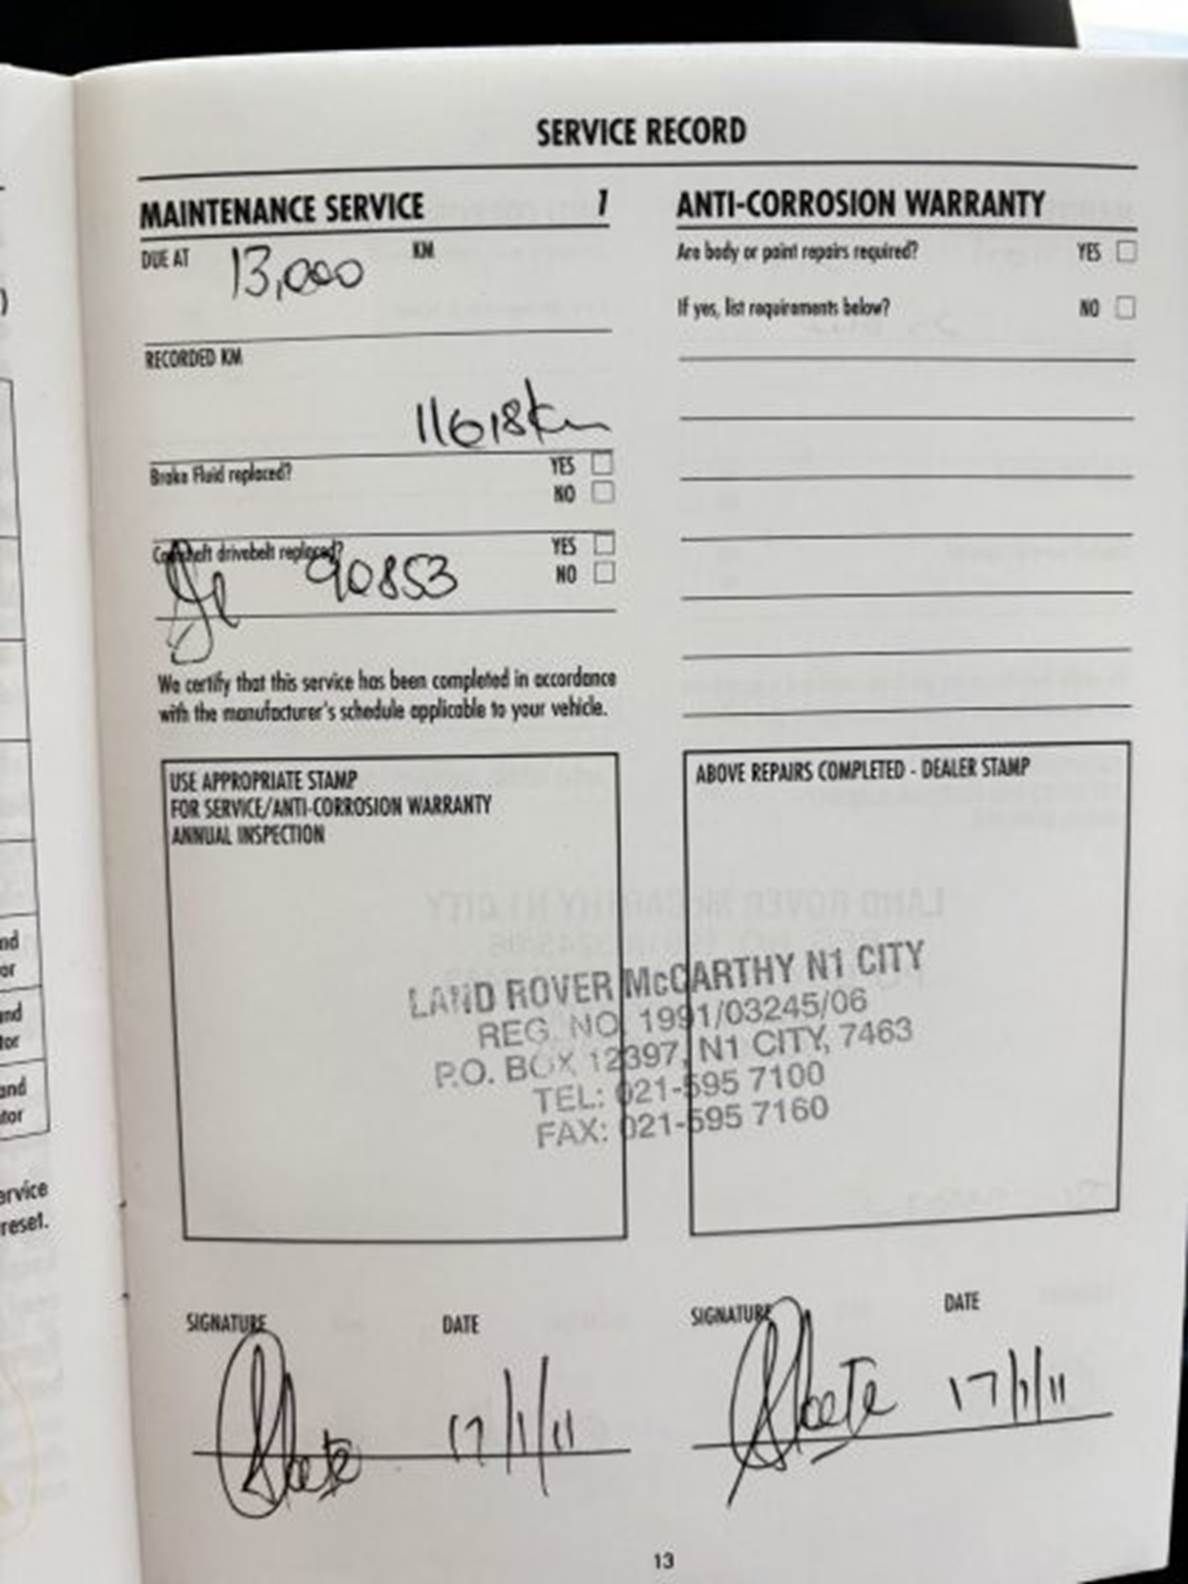 SERVICE RECORD
MAINTENANCE SERVICE 1
DUE AT 13,000 KM
RECORDED KM
11618km
Brake Fluid replaced? YES
NO
Camshaft drivebelt replaced? YES
90853 NO
We certify that this service has been completed in accordance
with the manufacturer's schedule applicable to your vehicle.
USE APPROPRIATE STAMP
FOR SERVICE/ANTI-CORROSION WARRANTY
ANNUAL INSPECTION
ANTI-CORROSION WARRANTY
Are body or paint repairs required? YES
If yes, list requirements below? NO
ABOVE REPAIRS COMPLETED - DEALER STAMP
LAND ROVER McCARTHY N1 CITY
REG. NO. 1991/03245/06
P.O. BOX 12397, N1 CITY, 7463
TEL: 021-595 7100
FAX: 021-595 7160
SIGNATURE DATE
17/1/11
SIGNATURE DATE
17/1/11
13
nd
or
and
tor
and
tor
ervice
reset.